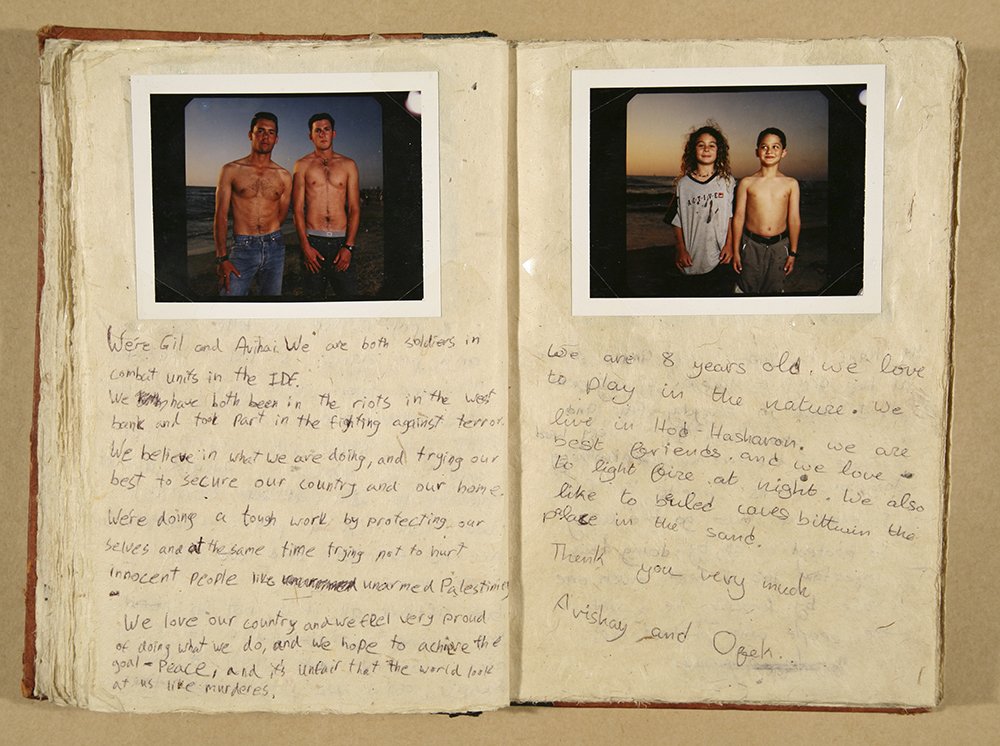 We're Gil and Avihai. We are both soldiers in
combat units in the IDF.
We have both been in the riots in the west
bank and took part in the fighting against terror.
We believe in what we are doing, and trying our
best to secure our country and our home.
We're doing a tough work by protecting our
selves and at the same time trying not to hurt
innocent people like unarmed Palestinies
We love our country and we feel very proud
of doing what we do, and we hope to achieve the
goal - Peace, and it's unfair that the world look
at us like murderes.
We are 8 years old. we love
to play in the nature. We
live in Hod-Hasharon. we are
best friends. and we love
to light fire at night. We also
like to builed caves bittwin the
palace in the sand.
Thenk you very much
Avishay and